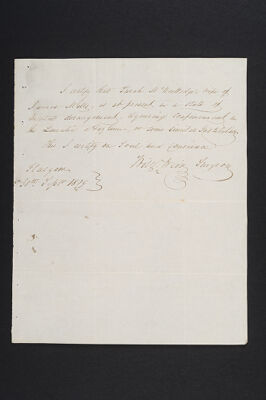 I certify that Sarah McCutledge wife of
James Mills, is at present in a state of
mental derangement, requiring confinement in
the Lunatic Asylum, or some similar Institution
This I certify on Soul and Conscience
Surgeon
Glasgow
Septr 1819